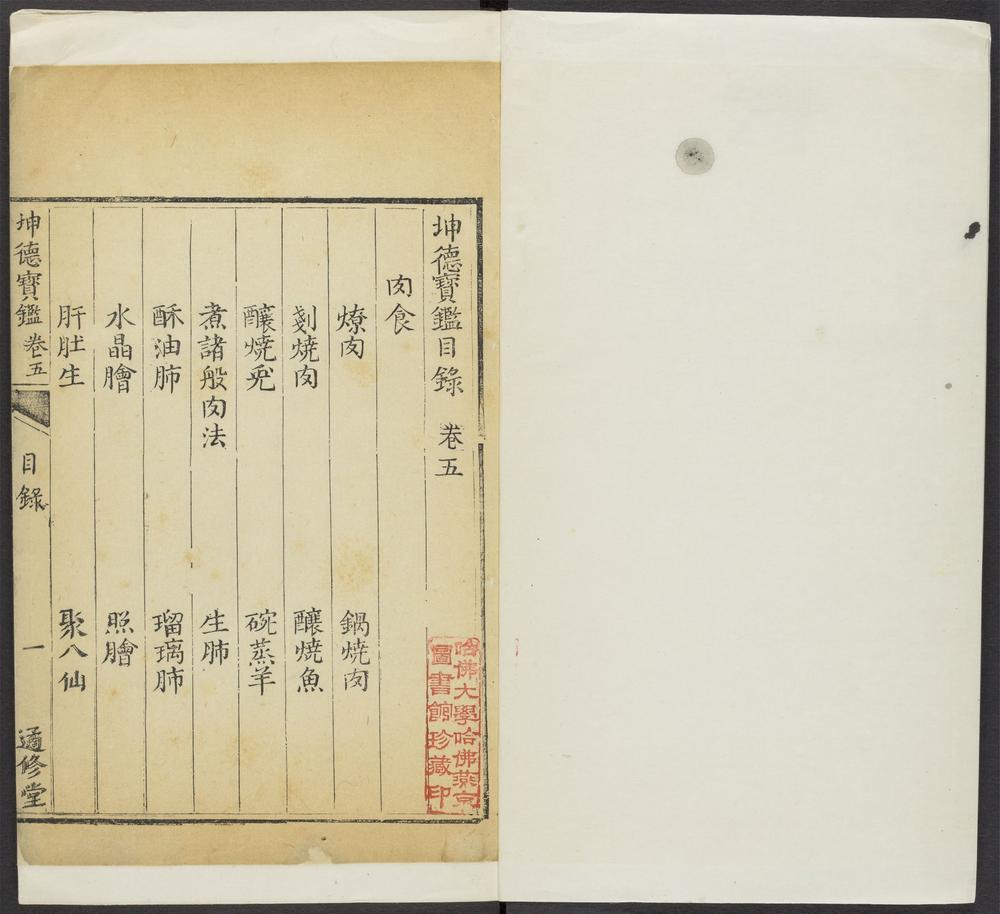 坤德寶鑑目錄 卷五
肉食
燎肉 鍋燒肉
剗燒肉 釀燒魚
釀燒兎 碗蒸羊
煮諸般肉法 生肺
酥油肺 瑠璃肺
水晶膾 照膾
肝肚生 聚八仙
坤德寶鑑 卷五 目錄 一 通修堂
哈佛大學哈佛燕京
圖書館珍藏印